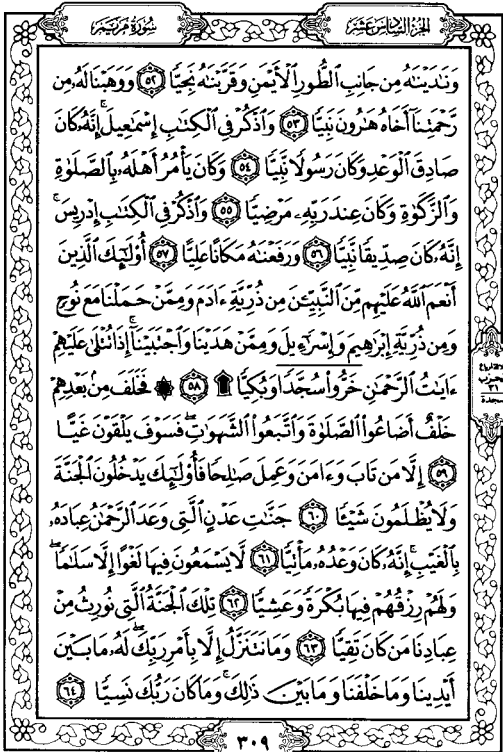 سُورَةُ مَرْيَمَ
الجُزْءُ السَّادِسَ عَشَرَ
وَنَٰدَيْنَٰهُ مِن جَانِبِ ٱلطُّورِ ٱلْأَيْمَنِ وَقَرَّبْنَٰهُ نَجِيًّا ﴿٥٢﴾ وَوَهَبْنَا لَهُۥ مِن
رَّحْمَتِنَآ أَخَاهُ هَٰرُونَ نَبِيًّا ﴿٥٣﴾ وَٱذْكُرْ فِى ٱلْكِتَٰبِ إِسْمَٰعِيلَ ۚ إِنَّهُۥ كَانَ
صَادِقَ ٱلْوَعْدِ وَكَانَ رَسُولًا نَّبِيًّا ﴿٥٤﴾ وَكَانَ يَأْمُرُ أَهْلَهُۥ بِٱلصَّلَوٰةِ
وَٱلزَّكَوٰةِ وَكَانَ عِندَ رَبِّهِۦ مَرْضِيًّا ﴿٥٥﴾ وَٱذْكُرْ فِى ٱلْكِتَٰبِ إِدْرِيسَ ۚ
إِنَّهُۥ كَانَ صِدِّيقًا نَّبِيًّا ﴿٥٦﴾ وَرَفَعْنَٰهُ مَكَانًا عَلِيًّا ﴿٥٧﴾ أُو۟لَٰٓئِكَ ٱلَّذِينَ
أَنْعَمَ ٱللَّهُ عَلَيْهِم مِّنَ ٱلنَّبِيِّـۧنَ مِن ذُرِّيَّةِ ءَادَمَ وَمِمَّنْ حَمَلْنَا مَعَ نُوحٍ
وَمِن ذُرِّيَّةِ إِبْرَٰهِيمَ وَإِسْرَٰٓءِيلَ وَمِمَّنْ هَدَيْنَا وَٱجْتَبَيْنَآ ۚ إِذَا تُتْلَىٰ عَلَيْهِمْ
ءَايَٰتُ ٱلرَّحْمَٰنِ خَرُّوا۟ سُجَّدًا وَبُكِيًّا ۩ ﴿٥٨﴾ ۞ فَخَلَفَ مِنۢ بَعْدِهِمْ
خَلْفٌ أَضَاعُوا۟ ٱلصَّلَوٰةَ وَٱتَّبَعُوا۟ ٱلشَّهَوَٰتِ ۖ فَسَوْفَ يَلْقَوْنَ غَيًّا
﴿٥٩﴾ إِلَّا مَن تَابَ وَءَامَنَ وَعَمِلَ صَٰلِحًا فَأُو۟لَٰٓئِكَ يَدْخُلُونَ ٱلْجَنَّةَ
وَلَا يُظْلَمُونَ شَيْـًٔا ﴿٦٠﴾ جَنَّٰتِ عَدْنٍ ٱلَّتِى وَعَدَ ٱلرَّحْمَٰنُ عِبَادَهُۥ
بِٱلْغَيْبِ ۚ إِنَّهُۥ كَانَ وَعْدُهُۥ مَأْتِيًّا ﴿٦١﴾ لَّا يَسْمَعُونَ فِيهَا لَغْوًا إِلَّا سَلَٰمًا ۖ
وَلَهُمْ رِزْقُهُمْ فِيهَا بُكْرَةً وَعَشِيًّا ﴿٦٢﴾ تِلْكَ ٱلْجَنَّةُ ٱلَّتِى نُورِثُ مِنْ
عِبَادِنَا مَن كَانَ تَقِيًّا ﴿٦٣﴾ وَمَا نَتَنَزَّلُ إِلَّا بِأَمْرِ رَبِّكَ ۖ لَهُۥ مَا بَيْنَ
أَيْدِينَا وَمَا خَلْفَنَا وَمَا بَيْنَ ذَٰلِكَ ۚ وَمَا كَانَ رَبُّكَ نَسِيًّا ﴿٦٤﴾
سجدة
٣٠٩